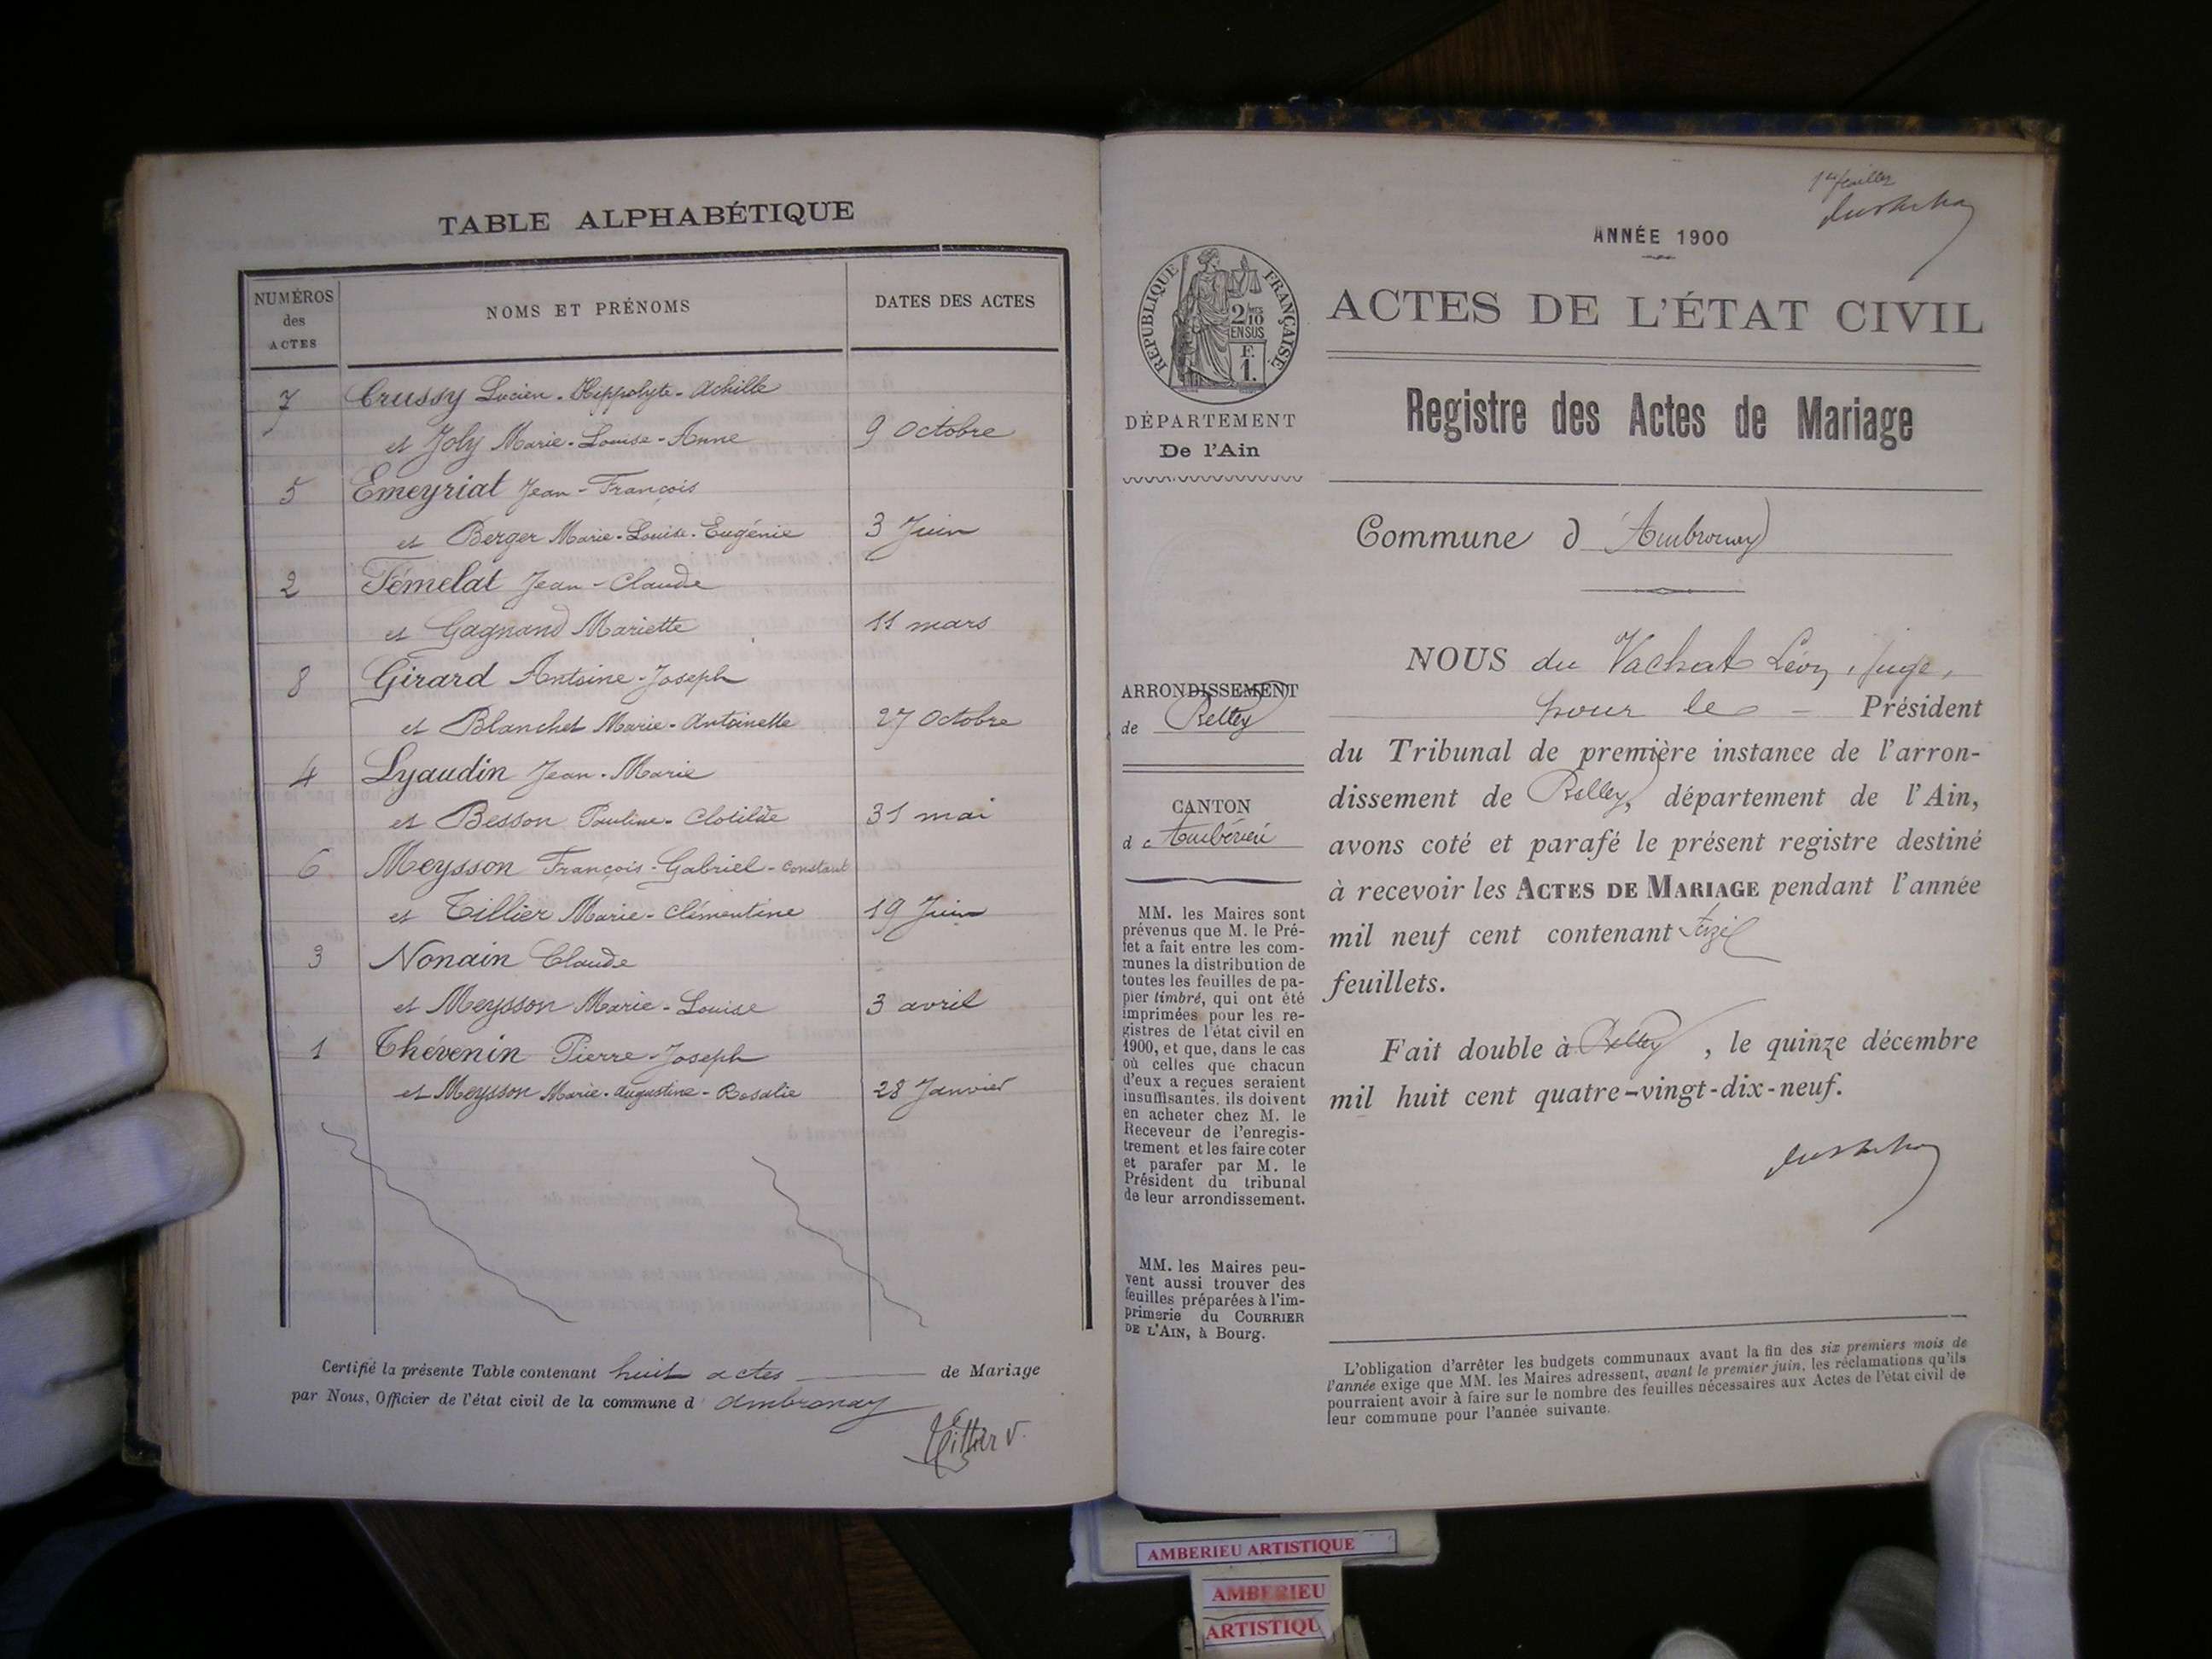 TABLE ALPHABÉTIQUE
NUMÉROS
des
ACTES
NOMS ET PRÉNOMS
DATES DES ACTES
7 Crussy Lucien-Hippolyte-Achille
et Joly Marie-Louise-Anne 9 Octobre
5 Émeyriat Jean-François
et Berger Marie-Louise-Eugénie 3 Juin
2 Fémelat Jean-Claude
et Gagnand Mariette 11 mars
8 Girard Antoine-Joseph
et Blanchet Marie-Antoinette 27 Octobre
4 Lyaudin Jean-Marie
et Besson Pauline-Clotilde 31 mai
6 Meysson François-Gabriel-Constant
et Tillier Marie-Clémentine 19 Juin
3 Nonain Claude
et Meysson Marie-Louise 3 avril
1 Thévenin Pierre-Joseph
et Meysson Marie-Augustine-Rosalie 28 Janvier
Certifié la présente Table contenant huit actes de Mariage
par Nous, Officier de l'état civil de la commune d'Ambronay
Tillier V.
1er feuillet
ANNÉE 1900
RÉPUBLIQUE FRANÇAISE
2/10
EN SUS
F.
1.
ACTES DE L'ÉTAT CIVIL
DÉPARTEMENT
De l'Ain
Registre des Actes de Mariage
Commune d'Ambronay
ARRONDISSEMENT
de Belley
CANTON
d'Ambérieu
MM. les Maires sont
prévenus que M. le Pré-
fet a fait entre les com-
munes la distribution de
toutes les feuilles de pa-
pier timbré, qui ont été
imprimées pour les re-
gistres de l'état civil en
1900, et que, dans le cas
où celles que chacun
d'eux a reçues seraient
insuffisantes, ils doivent
en acheter chez M. le
Receveur de l'enregis-
trement et les faire coter
et parafer par M. le
Président du tribunal
de leur arrondissement.
MM. les Maires peu-
vent aussi trouver des
feuilles préparées à l'im-
primerie du COURRIER
DE L'AIN, à Bourg.
NOUS du Vachat Léon, juge,
pour le Président
du Tribunal de première instance de l'arron-
dissement de Belley, département de l'Ain,
avons coté et parafé le présent registre destiné
à recevoir les ACTES DE MARIAGE pendant l'année
mil neuf cent contenant seize
feuillets.
Fait double à Belley, le quinze décembre
mil huit cent quatre-vingt-dix-neuf.
L'obligation d'arrêter les budgets communaux avant la fin des six premiers mois de
l'année exige que MM. les Maires adressent, avant le premier juin, les réclamations qu'ils
pourraient avoir à faire sur le nombre des feuilles nécessaires aux Actes de l'état civil de
leur commune pour l'année suivante.
AMBERIEU ARTISTIQUE
AMBERIEU
ARTISTIQU